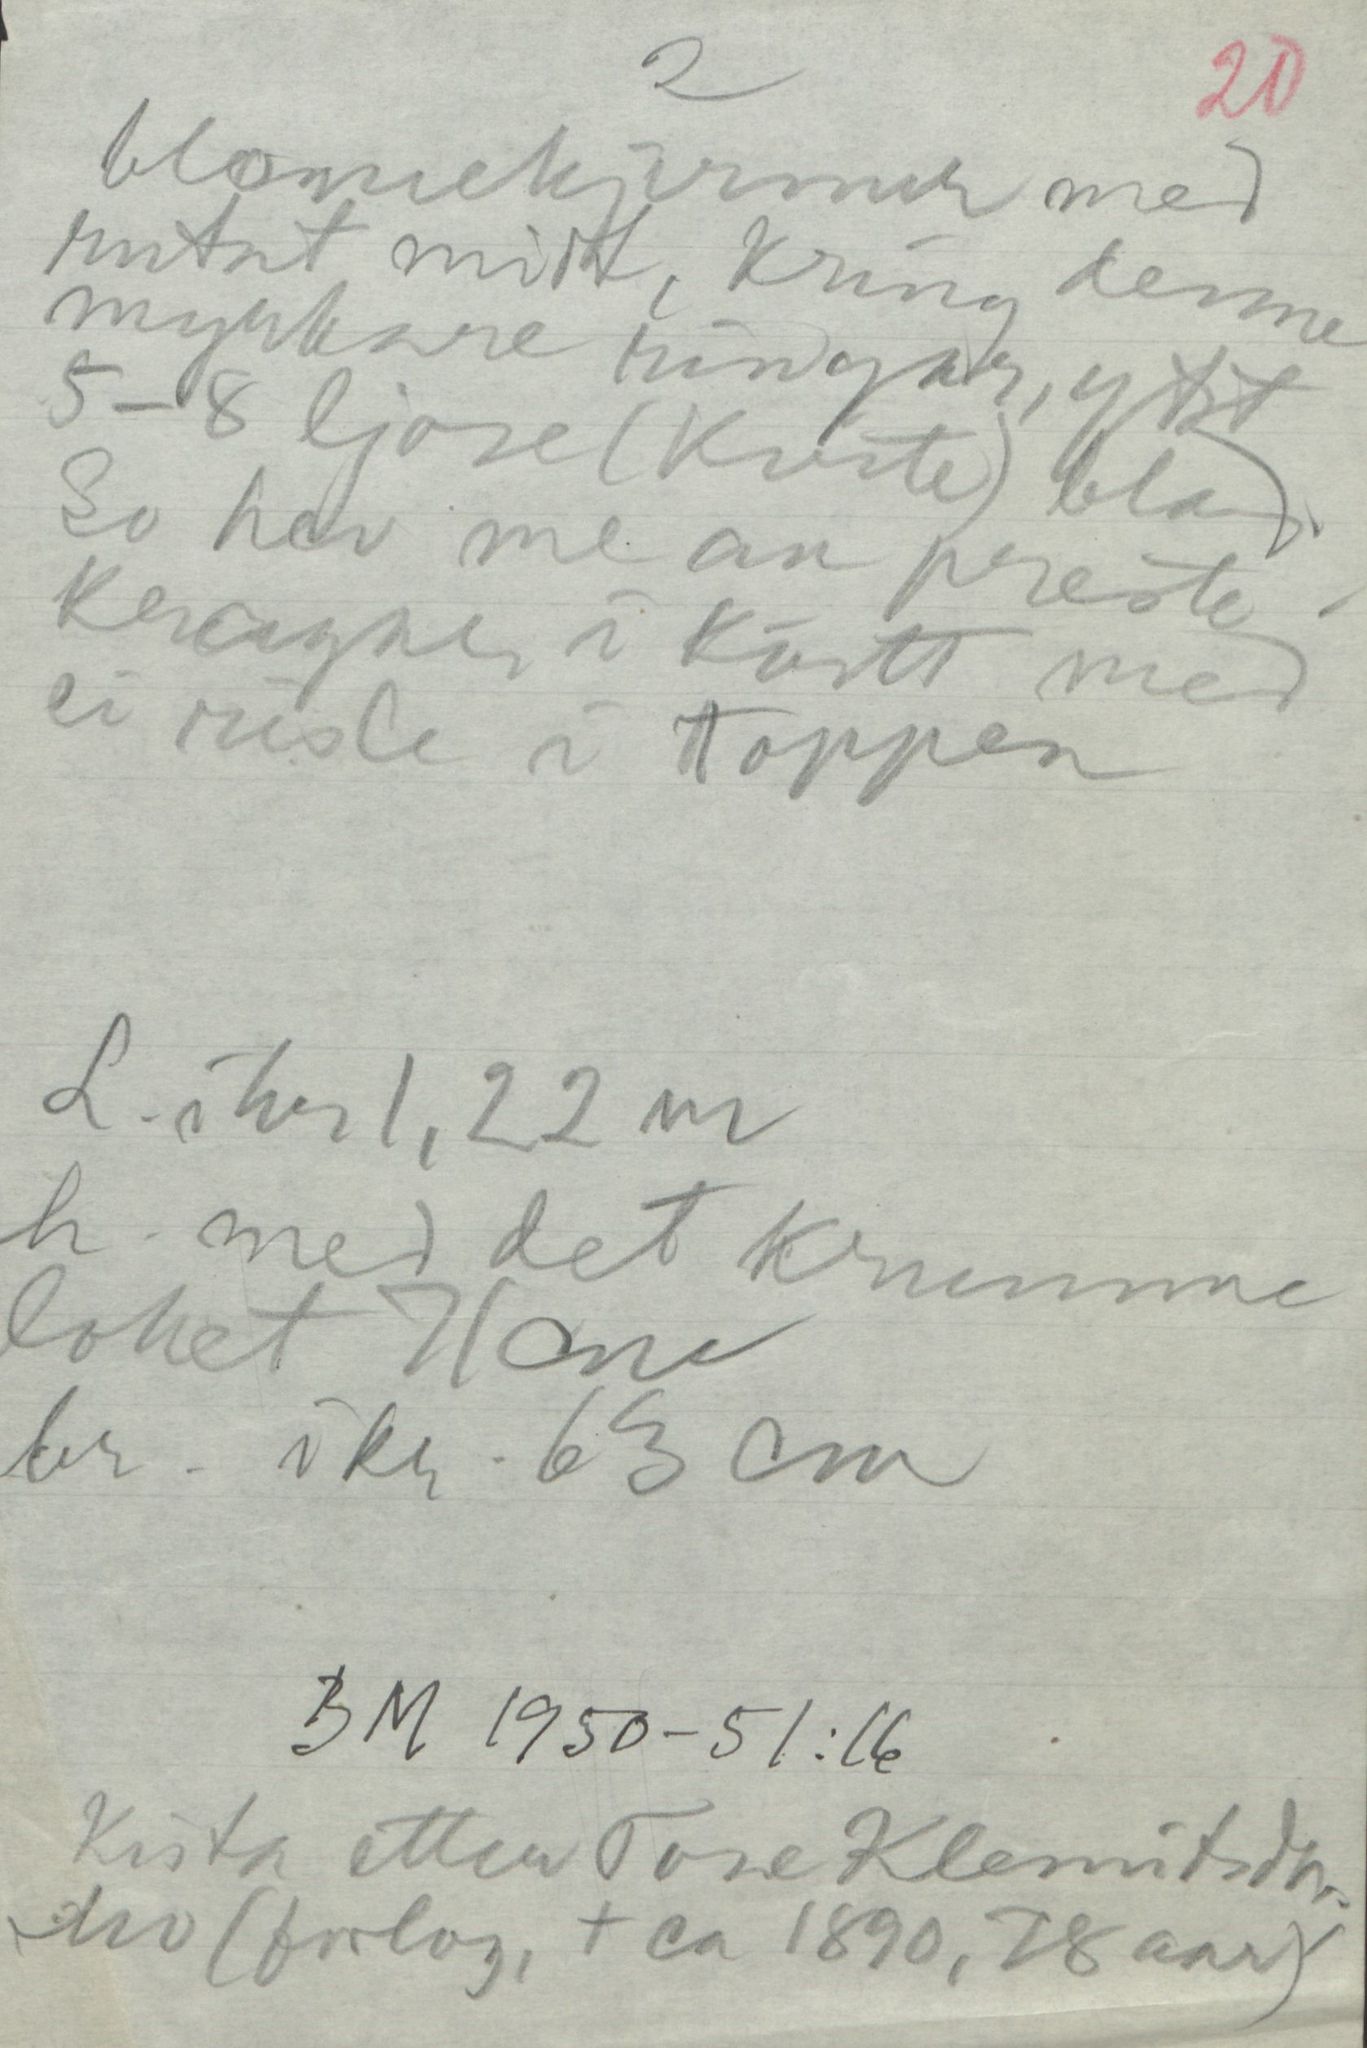 2
20
blomekjørmur med
rutat mitt, kring denne
myrkare ringar, ytst
5-8 ljose (kvite) blad.
So hev me an preste-
kragar, i kort med
ei i toppen
L. ikr 1,22 m
h. med det krumme
loket 71 cm
br. ikr. 63 cm
BM 1950-51:16
Kista etter Tone Klemits
(forlog, + ca 1890, 78 aar)